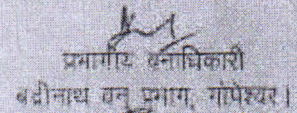 प्रभागीय वनाधिकारी
बद्रीनाथ वन प्रभाग, गोपेश्वर।